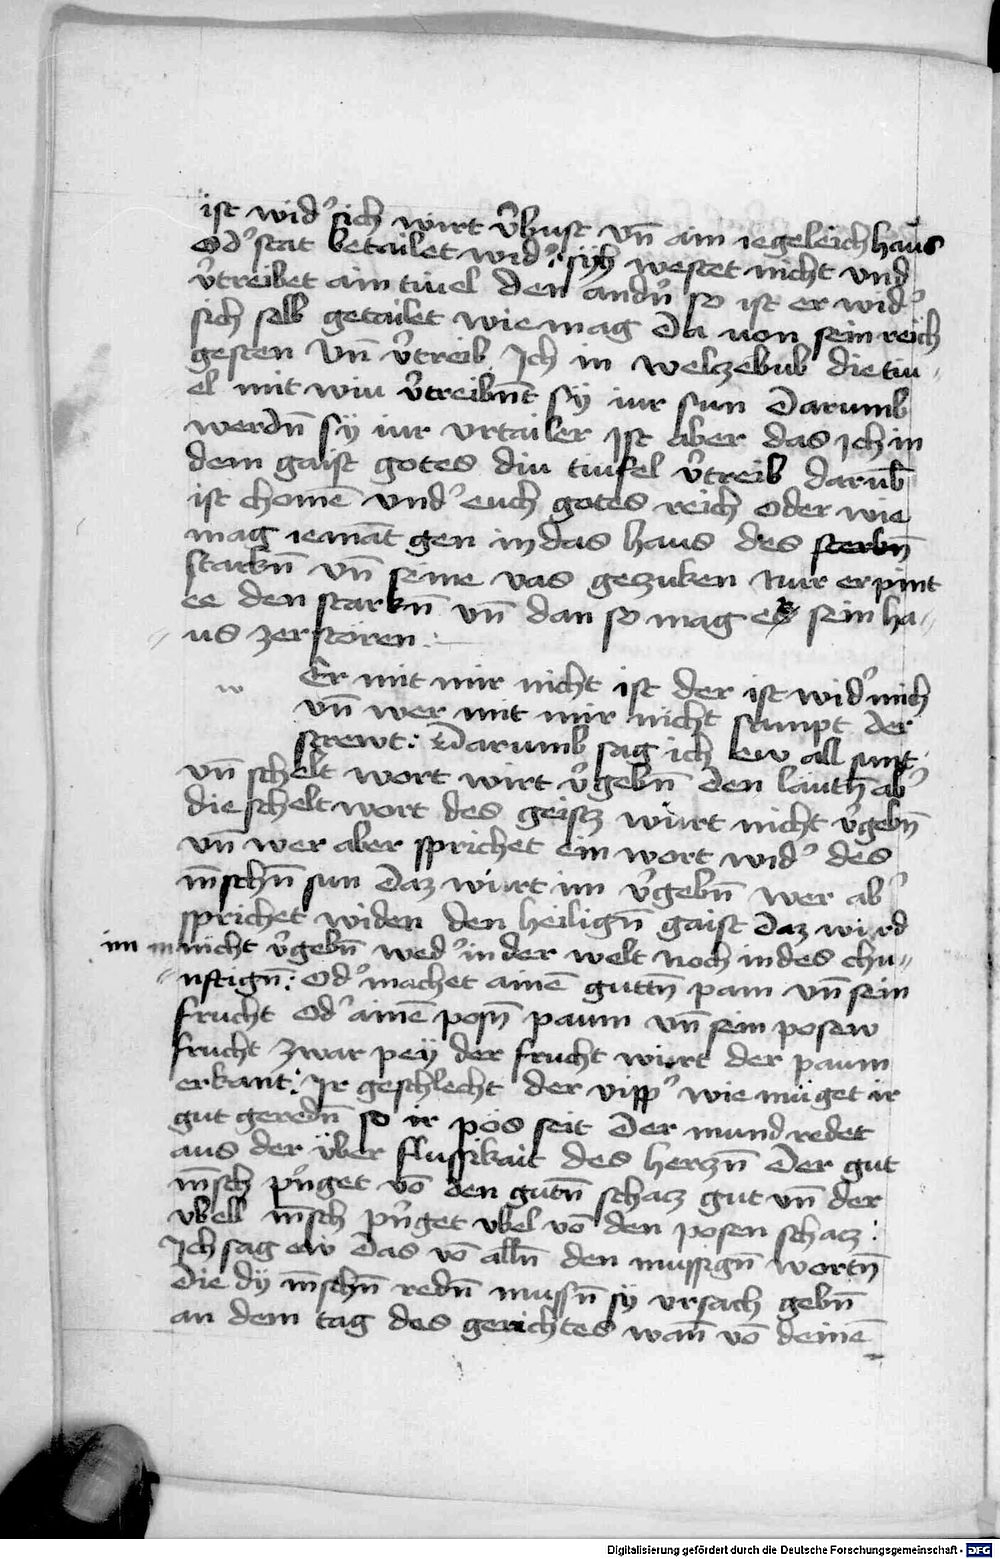 ist wid᾽ sich wirt v̓bust vn̄ ain iegeleich haus
Od᾽ stat betailet wid᾽ sÿch westet nicht vnd
v̓treibet ain tiuel den andn̓ so ist er wid᾽
sich selb getailet wie mag Da uon sein reich
gesten Vn̄ v̓treib Ich in welzebub die tiu-
el mit wiu v̓treibnt̄ sÿ iur sun Darumb
werdn̄ sÿ iur vrtailer Ist aber das ich in
dem gaist gotes diu tiufel v̓treib darūb
ist chomē vnd᾽ euch gotes reich Oder wie
mag iemāt gen in das haus des sterkn̄
starkn̄ vn̄ seine vas gezuken Nur er pint
ee den starkn̄ vn̄ dan so mag er sein ha〃
〃us zerstören :
w Er mit mir nicht ist der ist wid᾽ mich
vn̄ wer mit mir nicht sampt der
strewt : Darumb sag ich ew all sunt
vn̄ schelt wort wirt v̓gebn̄ den läuth̄ ab᾽
die schelt wort des geistz wirt nicht v̓gebn̄
vn̄ wer aber sprichet ein wort wid᾽ des
m̄schn̄ sun Daz wirt im v̓gebn̄ wer ab᾽
sprichet widen den heilign̄ gaist Daz wird
im nicht v̓gebn̄ wed᾽ in der welt noch in des chu〃
〃nftign̄ : Od᾽ machet ainē guttn̄ pam vn̄ sein
frucht Od᾽ ainē posn̄ paum vn̄ sein posew
frucht Zwar peÿ der frucht wirt der paum
erkant : Ir geschlecht der vipp᾽ wie müget ir
gut geredn̄ so ir pös seit Der mund redet
aus der über flussikait des herczn̄ Der gut
m̄sch pn̓get vō den gutn̄ schacz gut vn̄ der
vbell m̄sch pn̓get vbel vō den posen schacz :
Ich sag ew Das vō alln̄ den mussign̄ wortn̄
Die dÿ m̄schn̄ redn̄ mussn̄ sÿ vrsach gebn̄
an dem tag des gerichtes wan̄ vō deinē
Digitalisierung gefördert durch die Deutsche Forschungsgemeinschaft - DFG